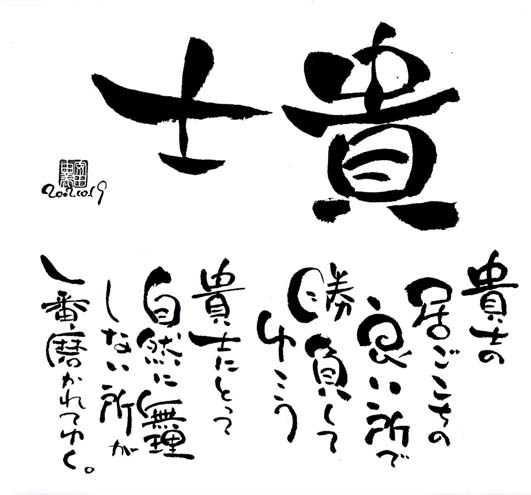 貴士
貴士の
居ごこちの
良い所で
勝負して
ゆこう
貴士にとって
自然に無理
しない所が
一番磨かれてゆく。